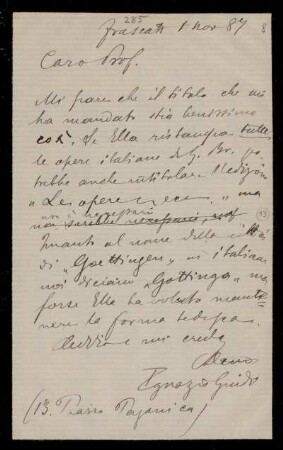 285
Frascati 1 Nov 87
8
Caro Prof.
Mi pare che il titolo che mi
ha mandato stia benissimo
così. Se Ella ristampa tutte
le opere italiane di G. Br. po
trebbe anche intitolar l'edizione
"Le opere ecc." ma
non è necessario
non sarebbe necessario,
13
Quanto al nome della città
di "Goettingen" in italiano
noi diciamo "Gottinga" ma
forse Ella ha voluto mante
nere la forma tedesca.
e mi creda
Ignazio Guidi
(13. Piazza Paganica)